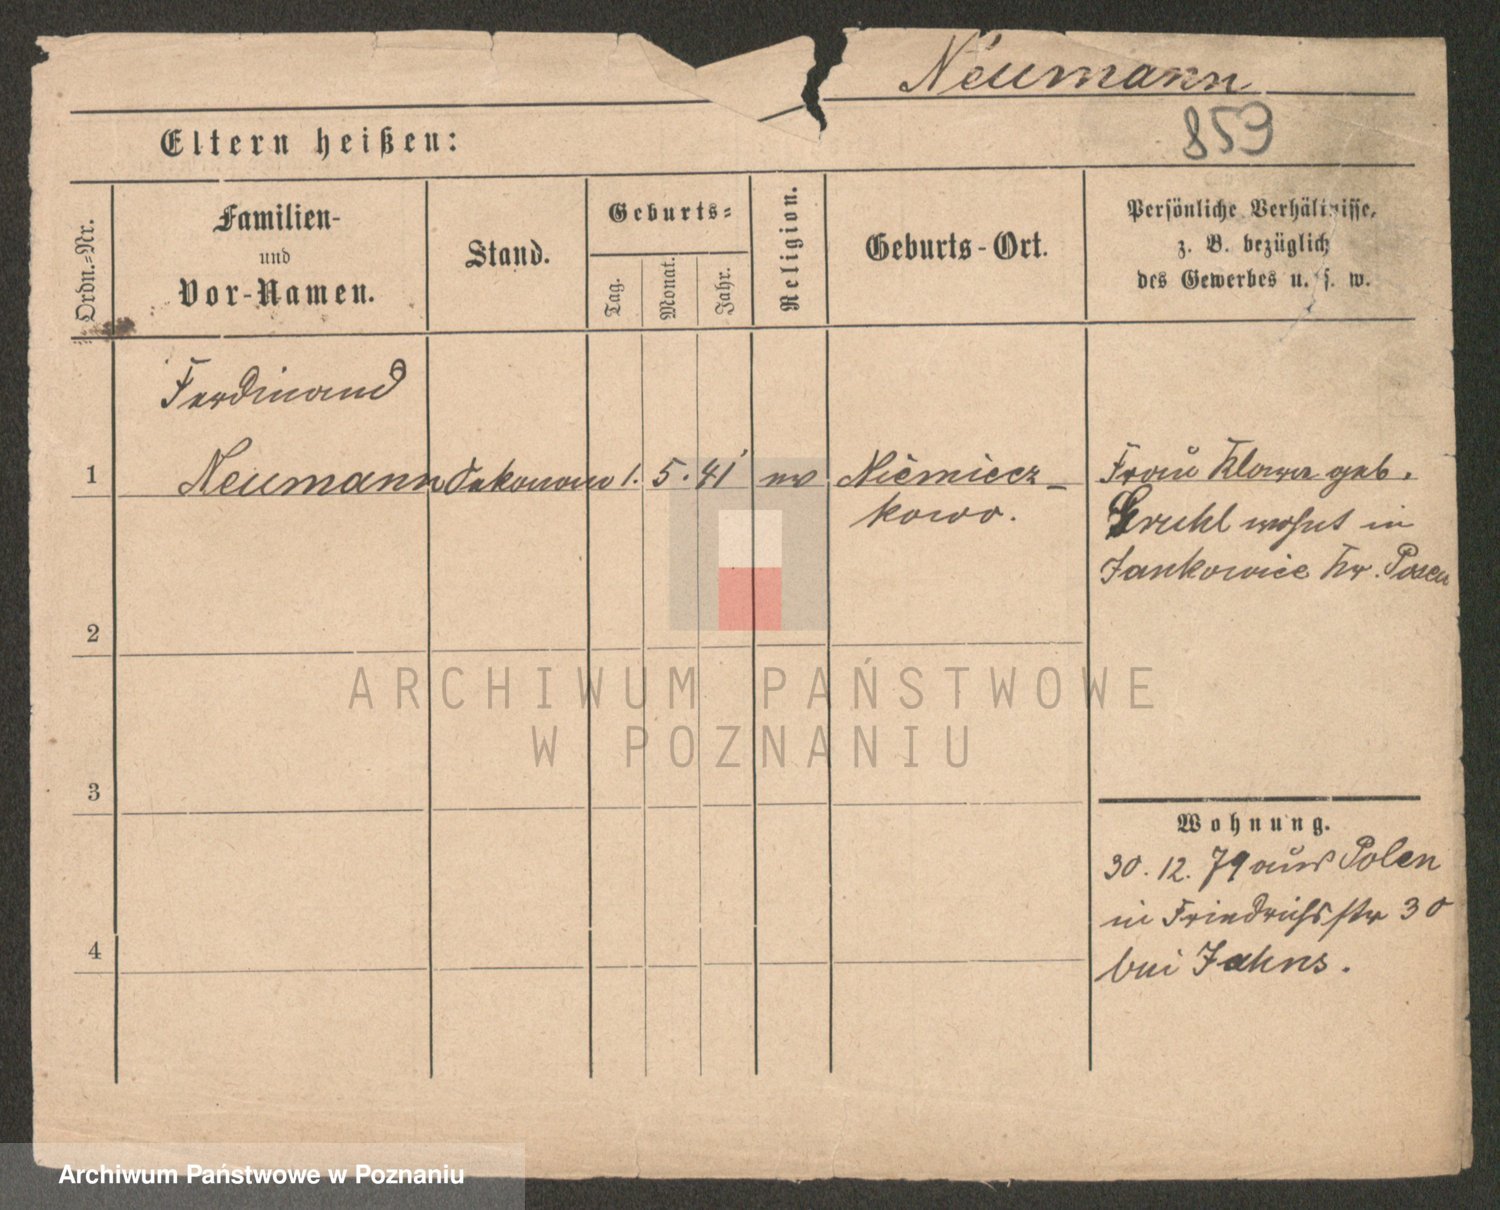 Neumann
859
Eltern heißen:
Ordn.-Nr.
Familien-
und
Vor-Namen.
Stand.
Geburts-
Tag.
Monat.
Jahr.
Religion.
Geburts-Ort.
Persönliche Verhältnisse,
z. B. bezüglich
des Gewerbes u. s. w.
Ferdinand
1 Neumann Oekonom 1. 5. 41 ev Niemiecz-
kowo.
Frau Klara geb.
Gruhl wohnt in
Jankowice Kr. Posen
2
3
4
Wohnung.
30. 12. 79 aus Polen
in Friedrichsstr 30
bei Jahns.
ARCHIWUM PAŃSTWOWE
W POZNANIU
Archiwum Państwowe w Poznaniu